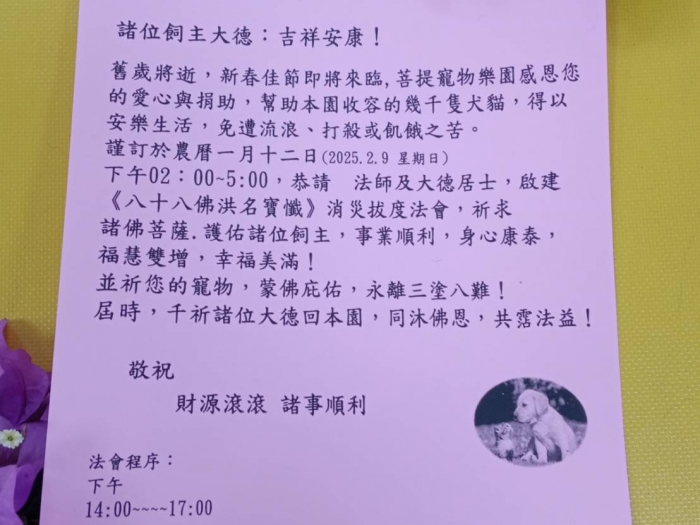 諸位飼主大德：吉祥安康！
舊歲將逝，新春佳節即將來臨,菩提寵物樂園感恩您
的愛心與捐助，幫助本園收容的幾千隻犬貓，得以
安樂生活，免遭流浪、打殺或飢餓之苦。
謹訂於農曆一月十二日(2025.2.9 星期日)
下午02：00~5:00，恭請　法師及大德居士，啟建
《八十八佛洪名寶懺》消災拔度法會，祈求
諸佛菩薩.護佑諸位飼主，事業順利，身心康泰，
福慧雙增，幸福美滿！
並祈您的寵物，蒙佛庇佑，永離三塗八難！
屆時，千祈諸位大德回本園，同沐佛恩，共霑法益！
敬祝
財源滾滾 諸事順利
法會程序：
下午
14:00~~~~17:00